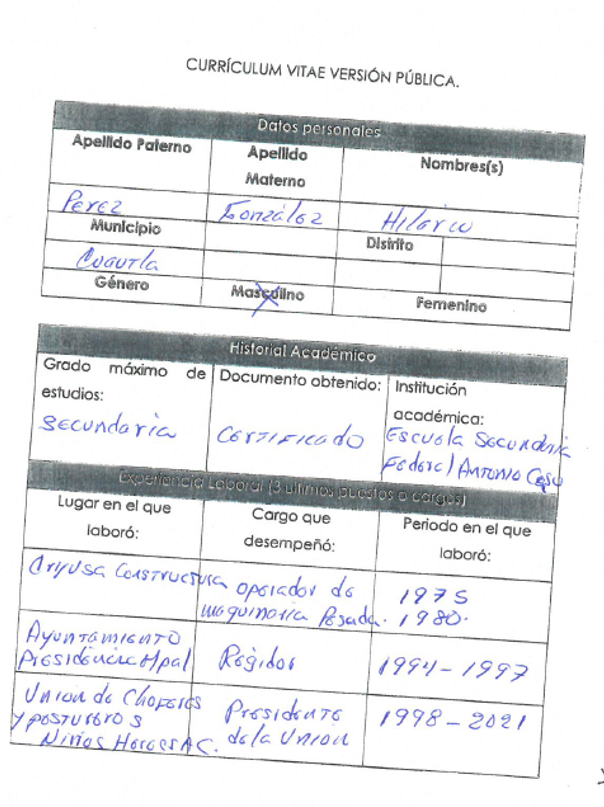 CURRÍCULUM VITAE VERSIÓN PÚBLICA.
Datos personales
Apellido Paterno
Apellido
Materno
Nombres(s)
Perez
González
Hilario
Municipio
Distrito
Cuautla
Género
Masculino
Femenino
Historial Académico
Grado máximo de
estudios:
Documento obtenido:
Institución
académica:
Secundaria
Certificado
Escuela Secundaria
Federal Antonio Caso
Experiencia Laboral (3 ultimos puestos o cargos)
Lugar en el que
laboró:
Cargo que
desempeñó:
Periodo en el que
laboró:
Constructora
operador de
maquinaria Pesada.
1975
1980.
Ayuntamiento
Presidencia Mpal
Regidor
1994-1997
Union de Choferes
y postureros
Niños Heroes A.C.
Presidente
de la Union
1998-2021